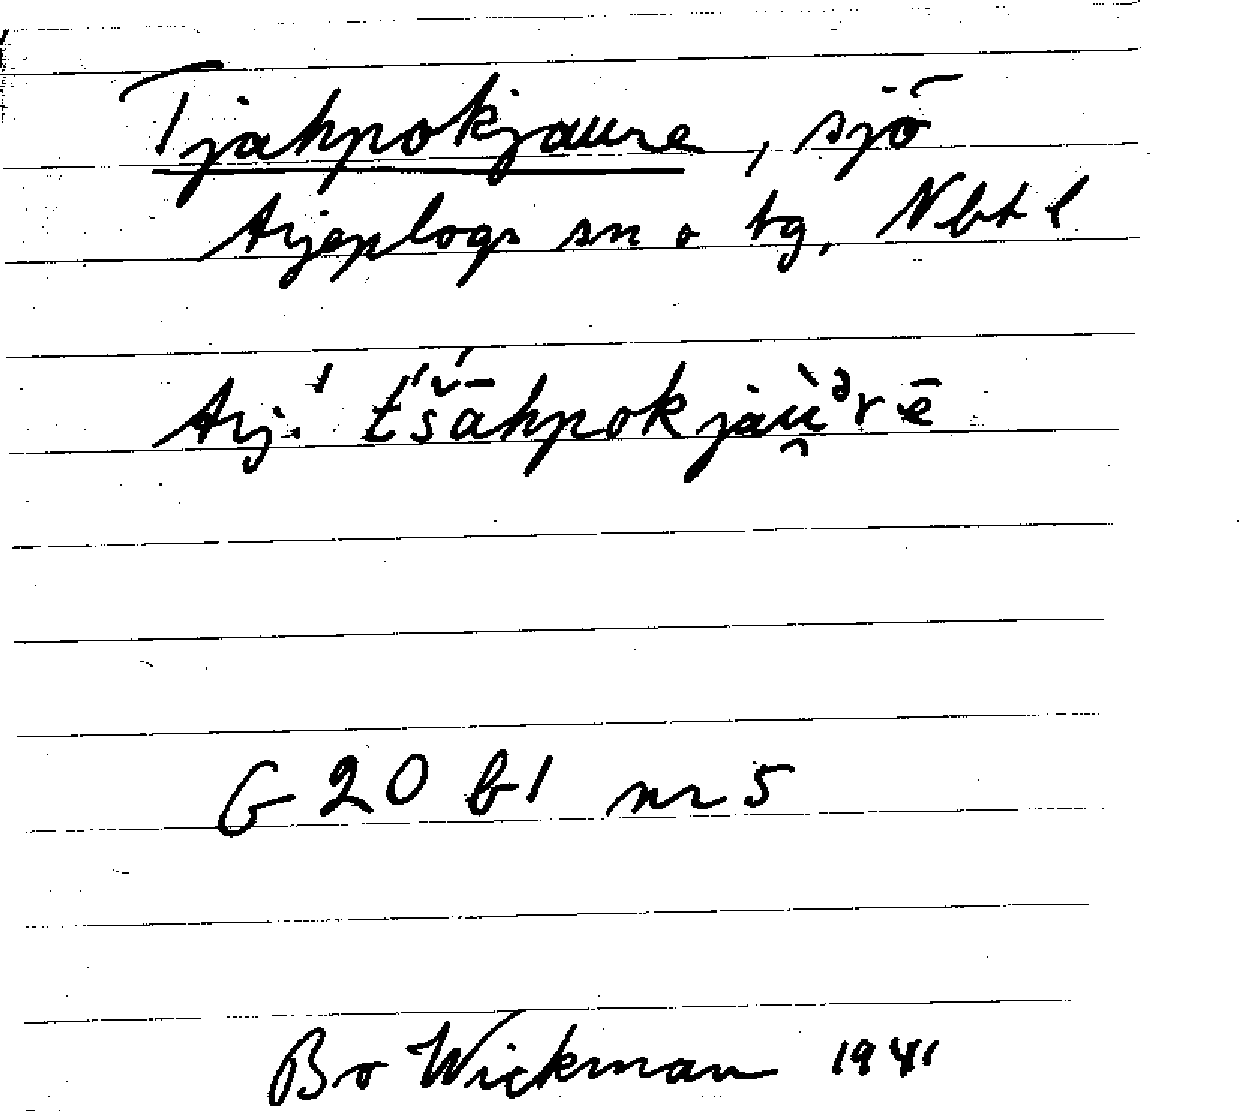 Tjahpokjaure, sjö
Arjeplogs sn o tg, Nbt l
Arj. t́šāhpokjàu̯ᵊrē
G 20 bl nr 5
Bo Wickman 1941